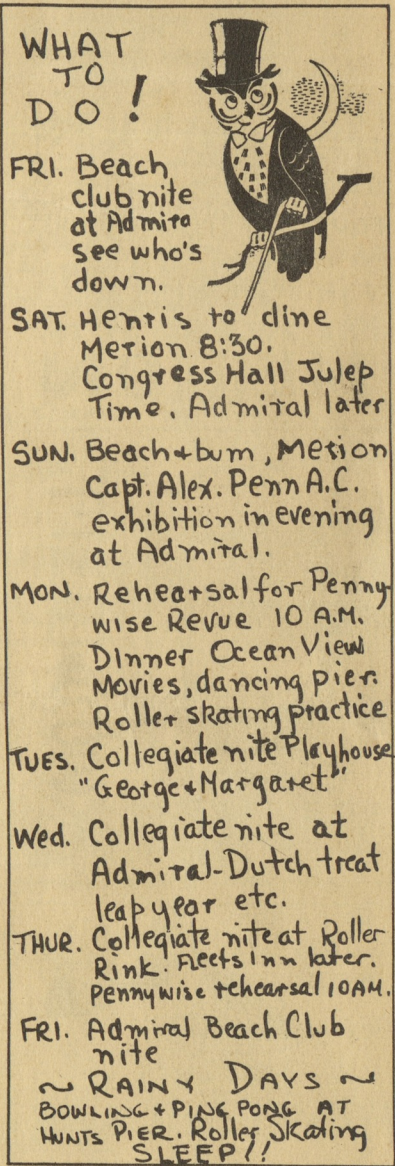 WHAT
TO
DO!
FRI. Beach
club nite
at Admira
see who's
down.
SAT. Henris to dine
Merion 8:30.
Congress Hall Julep
Time. Admiral later
SUN. Beach+bum, Merion
Capt. Alex. Penn A.C.
exhibition in evening
at Admiral.
MON. Rehearsal for Penny-
wise Revue 10 A.M.
Dinner Ocean View
Movies, dancing pier.
Roller skating practice
TUES. Collegiate nite Playhouse
"George+Margaret"
Wed. Collegiate nite at
Admiral-Dutch treat
leap year etc.
THUR. Collegiate nite at Roller
Rink. Fleets Inn later.
Pennywise rehearsal 10AM.
FRI. Admiral Beach Club
nite
~ RAINY DAYS ~
BOWLING + PING PONG AT
HUNTS PIER. Roller Skating
SLEEP!!